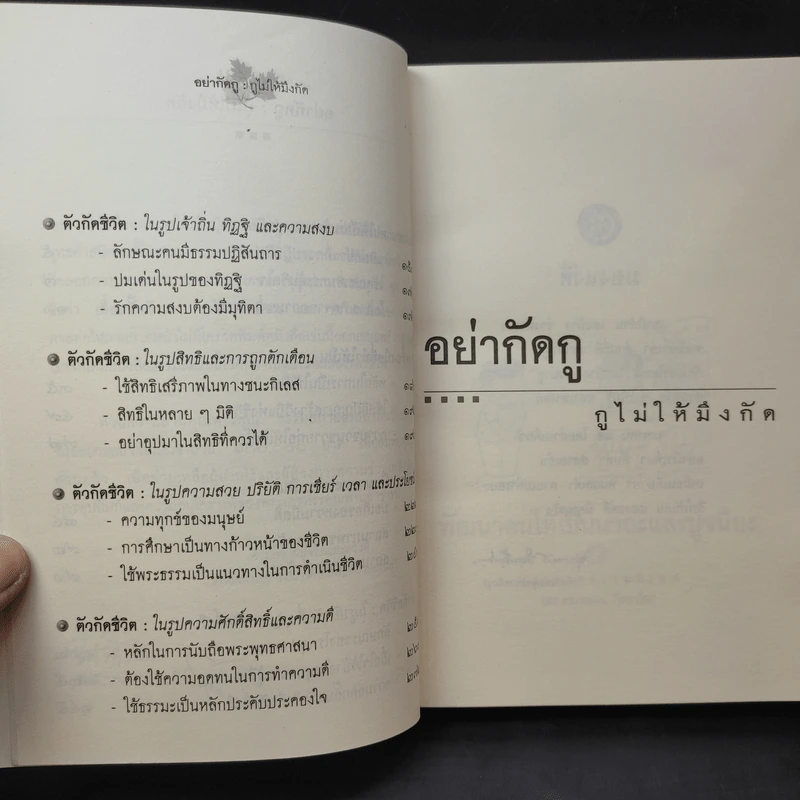 อย่ากัดกู : กูไม่ให้มึงกัด
ตัวกัดชีวิต : ในรูปเจ้าถิ่น ทิฏฐิ และความสงบ
- ลักษณะคนมีธรรมปฏิสันถาร
- ปมเด่นในรูปของทิฏฐิ
- รักความสงบต้องมีมุทิตา
ตัวกัดชีวิต : ในรูปสิทธิและการถูกตักเตือน
- ใช้สิทธิเสรีภาพในทางชนะกิเลส
- สิทธิในหลาย ๆ มิติ
- อย่าอุปมาในสิทธิที่ควรได้
ตัวกัดชีวิต : ในรูปความสวย ปริยัติ การเชียร์ เวลา และประโยชน์
- ความทุกข์ของมนุษย์
- การศึกษาเป็นทางก้าวหน้าของชีวิต
- ใช้พระธรรมเป็นแนวทางในการดำเนินชีวิต
ตัวกัดชีวิต : ในรูปความศักดิ์สิทธิ์และความดี
- หลักในการนับถือพระพุทธศาสนา
- ต้องใช้ความอดทนในการทำความดี
- ใช้ธรรมะเป็นหลักประคับประคองใจ
อย่ากัดกู
กูไม่ให้มึงกัด